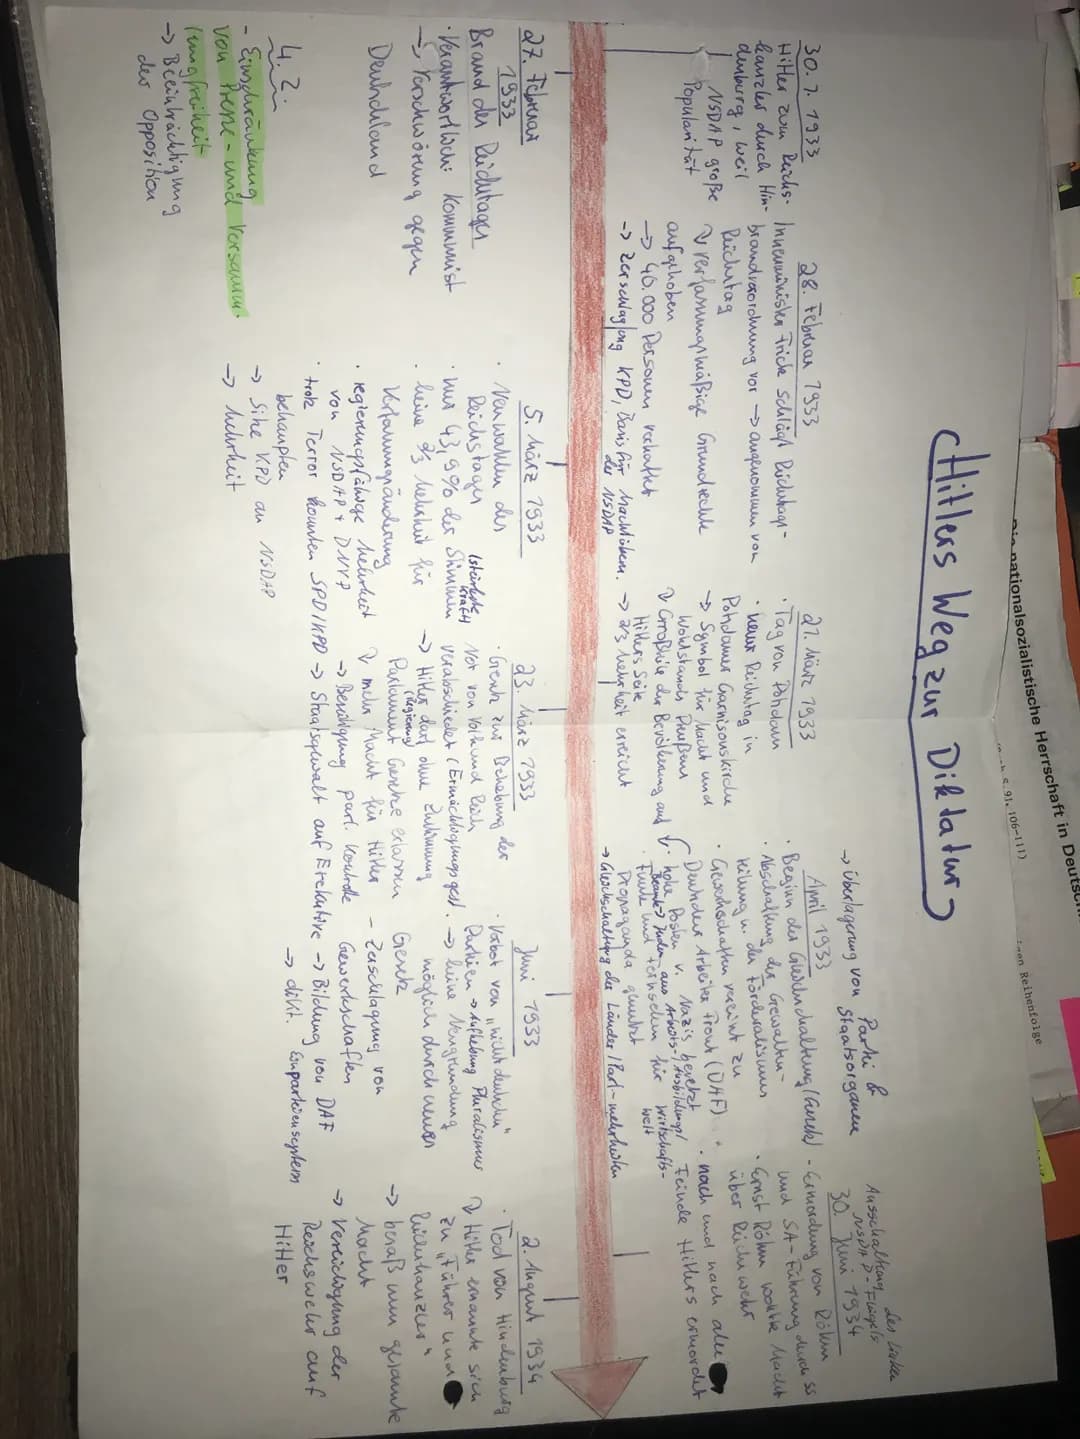 Die nationalsozialistische Herrschaft in Deutsch
S. 91, 106-111)
Reihenfolge
Hitlers Weg zur Diktatur
30.1.1933
Hitler zum Reichs-
kanzler durch Hin-
denburg, weil
NSDAP große
Popularität
28. Februar 1933
Innenminister Frick schlägt Reichstags-
brandverordnung vor → angenommen von
Reichstag
↳ verfassungsmäßige Grundrechte
aufgehoben
→ 40.000 Personen verhaftet
→ Zerschlagung KPD, Basis für
der NSDAP
21. März 1933
· Tag von Potsdam
· neuer Reichstag in
Potsdamer Garnisonskirche
→ Symbol für Macht und
Wohlstands Preußens
↳ Großteil der Bevölkerung auf
Hitlers Seite
→ 2/3 Mehrheit erreicht
→ Überlagerung von Partei &
Staatsorganen
April 1933
· Beginn der Gleichschaltung (Gesetz)
· Abschaffung der Gewalten-
teilung u. des Förderalismus
· Gewerkschaften vereint zu
Deutscher Arbeiter Front (DAF)
· hohe Posten v. Nazis besetzt
Beamte → Juden aus Arbeits/Ausbildungs/
Wirtschafts-
welt
· Funk und Fernsehen für
Propaganda genutzt
→ Gleichschaltung der Länder/Parl-mehrheiten
Ausschaltung des linken
NSDAP-Flügels
30. Juni 1934
- Ermordung von Röhm
und SA-Führung durch SS
· Ernst Röhm wollte Macht
über Reichswehr
· nach und nach alle
Feinde Hitlers ermordet
27. Februar
1933
Brand des Reichstages
· Verantwortlich: Kommunist
→ Verschwörung gegen
Deutschland
4.2.
- Einschränkung
von Presse- und Versamm-
lungfreiheit
→ Beeinträchtigung
der Opposition
5. März 1933
· Neuwahlen des
Reichstages
(stärkste
Kraft)
· nur 43,9% der Stimmen
· keine 2/3 Mehrheit für
Verfassungsänderung
· regierungsfähige Mehrheit
von NSDAP + DNVP
· trotz Terror konnten SPD/KPD
behaupten
→ Sitze KPD an NSDAP
→ Mehrheit
23. März 1933
· Gesetz zur Behebung der
Not von Volk und Reich
verabschiedet (Ermächtigungsges.)
→ Hitler darf ohne Zustimmung
(Regierung)
Parlament Gesetze erlassen
↳ mehr Macht für Hitler
→ Beseitigung parl. Kontrolle
→ Staatsgewalt auf Exekutive
Juni 1933
· Verbot von "nicht deutschen"
Parteien → Aufhebung Pluralismus
→ keine Neugründung
möglich durch neues
Gesetz
- Zerschlagung von
Gewerkschaften
→ Bildung von DAF
→ dikt. Einparteiensystem
2. August 1934
· Tod von Hindenburg
↳ Hitler ernannte sich
zu "Führer und
Reichskanzler"
→ besaß nun gesamte
Macht
→ Vereidigung der
Reichswehr auf
Hitler